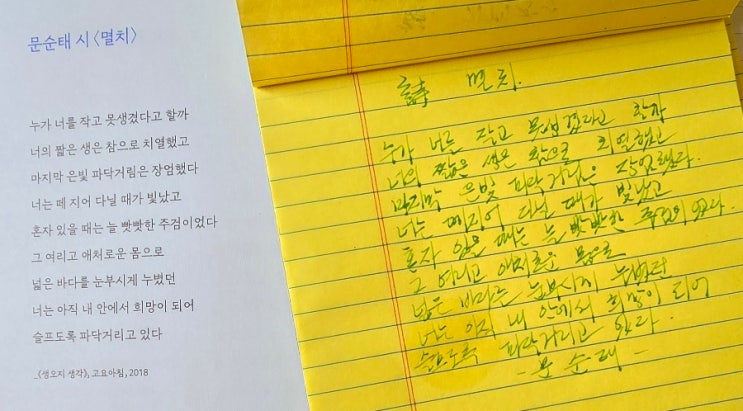 문순태 시 〈멸치〉
누가 너를 작고 못생겼다고 할까
너의 짧은 생은 참으로 치열했고
마지막 은빛 파닥거림은 장엄했다
너는 떼 지어 다닐 때가 빛났고
혼자 있을 때는 늘 빳빳한 주검이었다
그 여리고 애처로운 몸으로
넓은 바다를 눈부시게 누볐던
너는 아직 내 안에서 희망이 되어
슬프도록 파닥거리고 있다
_《생오지 생각》, 고요아침, 2018
詩 멸치.
누가 너를 작고 못생겼다고 할까
너의 짧은 생은 참으로 치열했고
마지막 은빛 파닥거림은 장엄했다.
너는 떼지어 다닐 때가 빛났고
혼자 있을 때는 늘 빳빳한 주검이었다.
그 여리고 애처로운 몸으로
넓은 바다를 눈부시게 누볐던
너는 아직 내 안에서 희망이 되어
슬프도록 파닥거리고 있다.
- 문순태 -